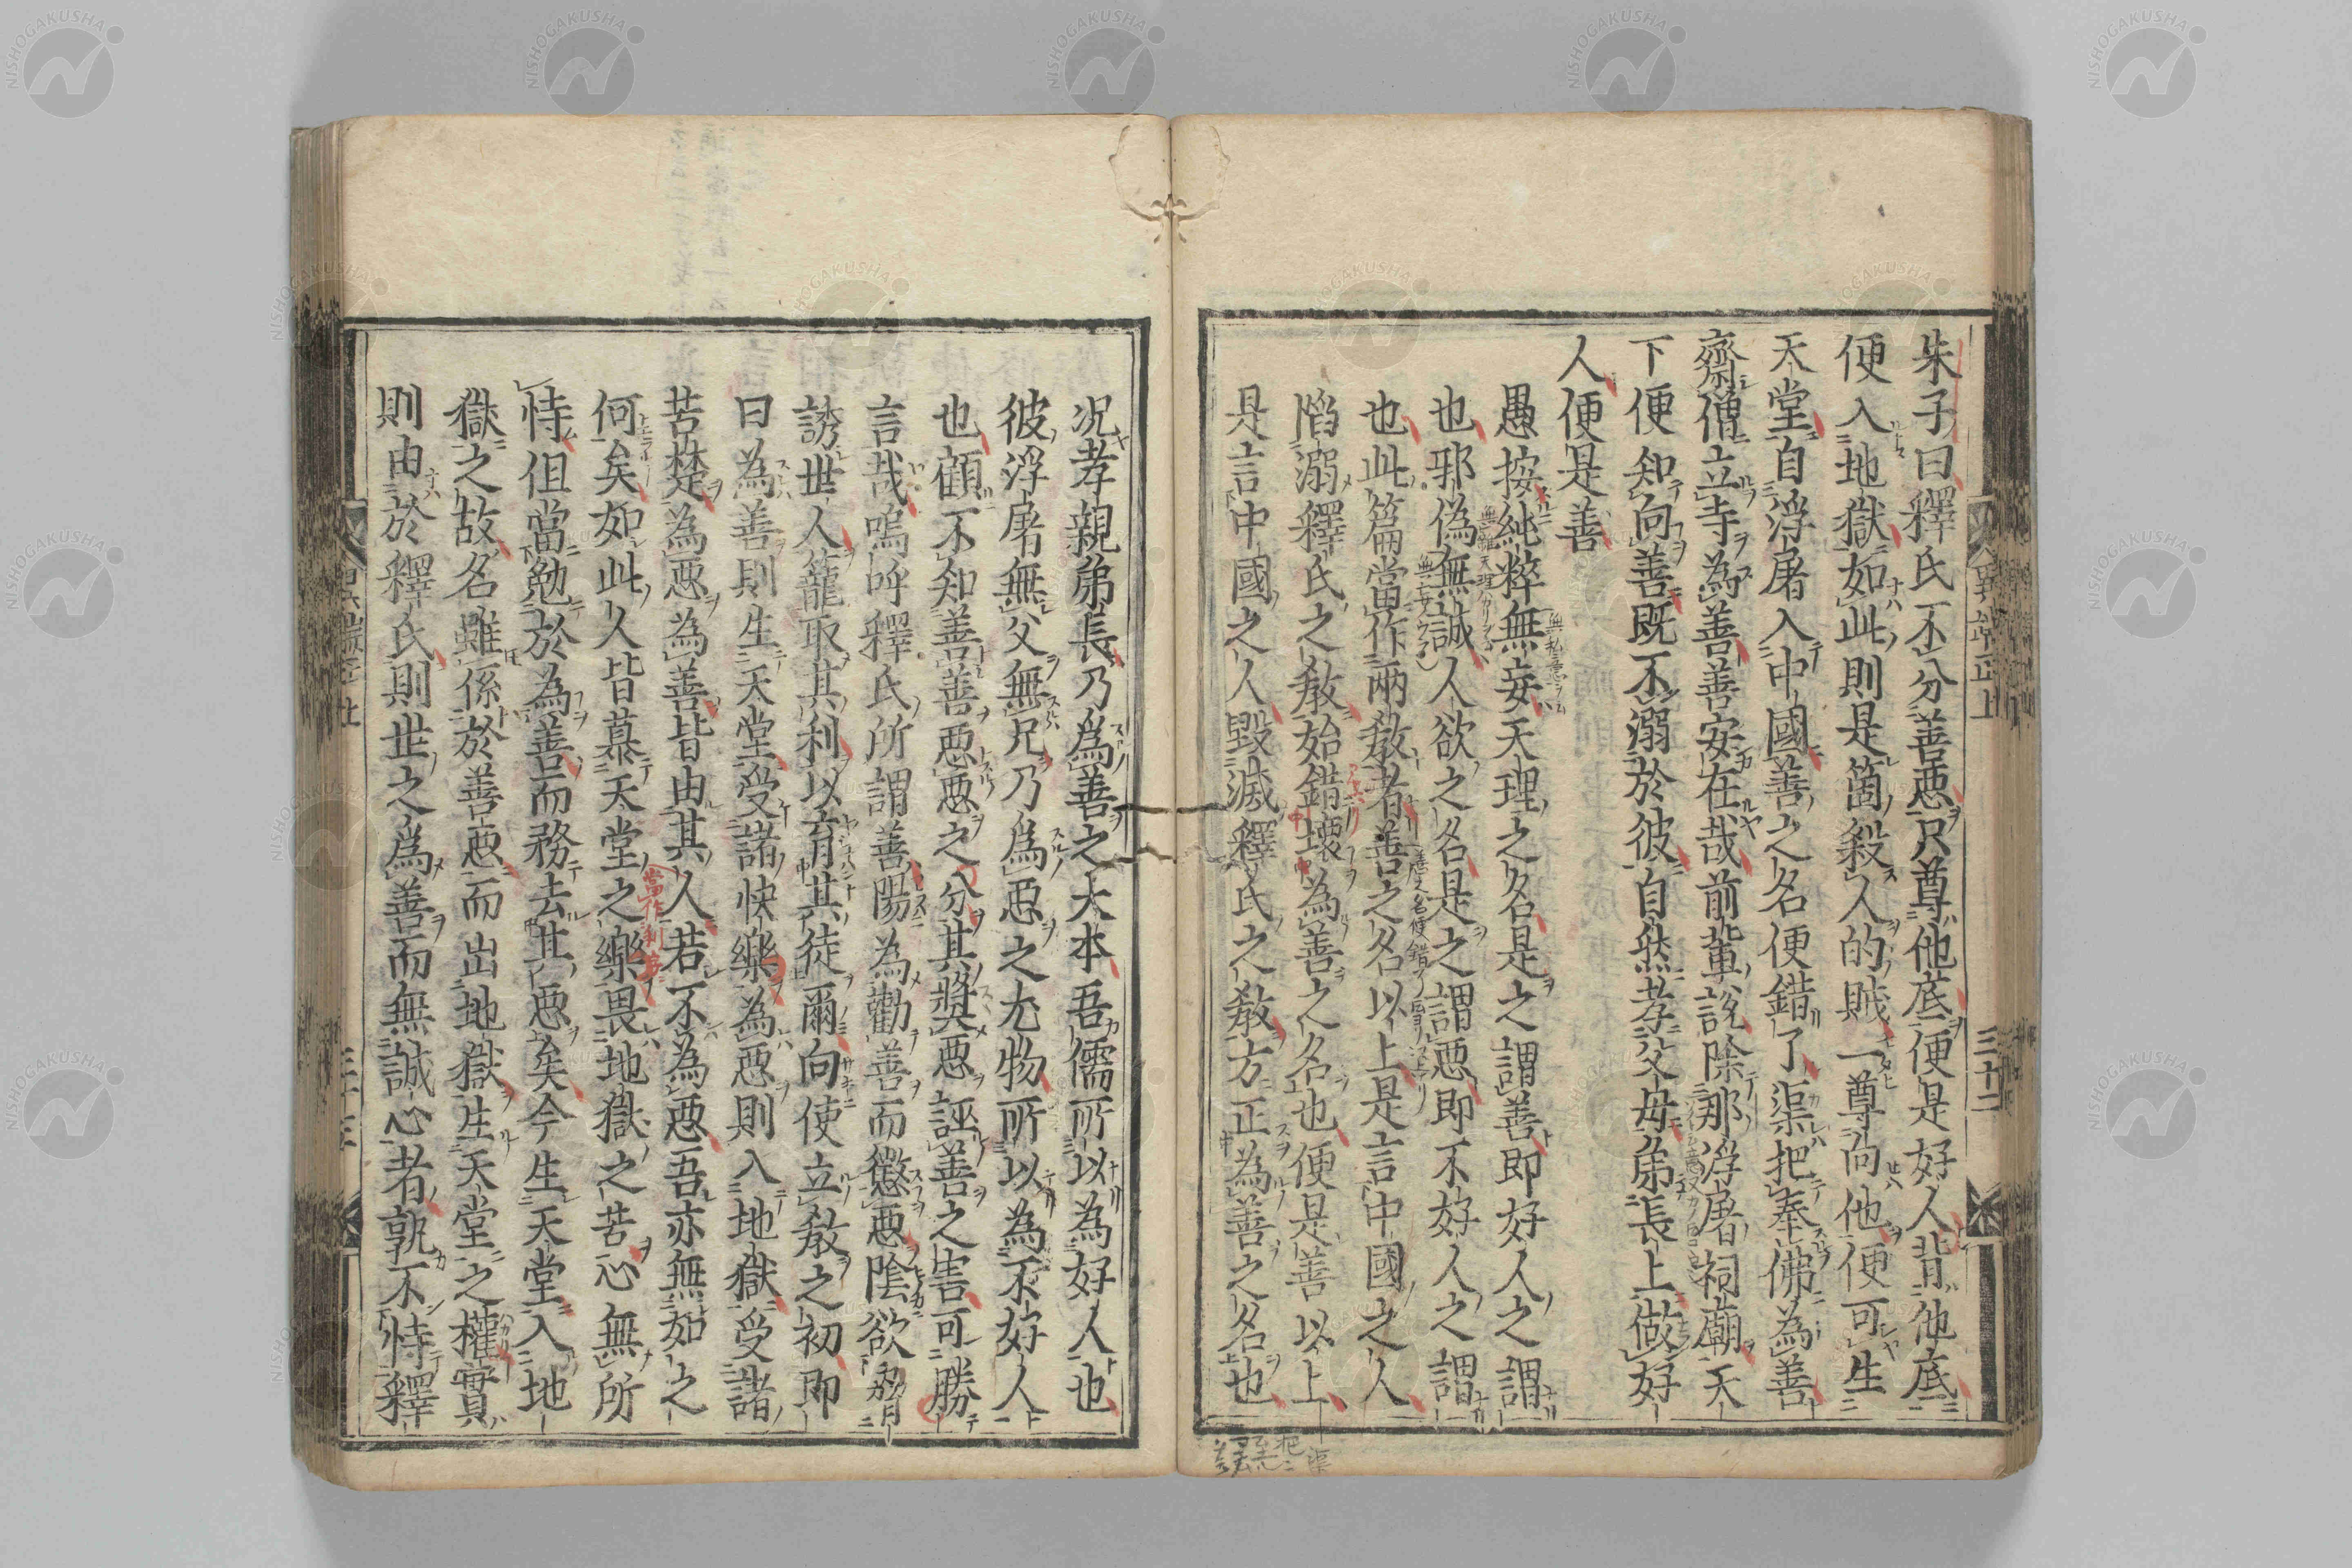 朱子曰釋氏不分善惡只尊他底便是好人背他底
便入地獄如此則是箇殺人的賊一尊向他便可生
天堂自浮屠入中國善之名便錯了渠把奉佛為善
齋僧立寺為善善安在哉前輩說除那浮屠祠廟天
下便知向善既不溺於彼自然孝父母弟長上做好
人便是善
愚按純粹無妄天理之名是之謂善即好人之謂
也邪偽無誠人欲之名是之謂惡即不好人之謂
也此篇當作兩教者善之名以上是言中國之人
陷溺釋氏之教始錯壞為善之名也便是善以上
是言中國之人毀滅釋氏之教方正為善之名也
況孝親弟長乃為善之大本吾儒所以為好人也
彼浮屠無父無兄乃為惡之尤物所以為不好人
也顧不知善善惡惡之分其獎惡誣善之害可勝
言哉嗚呼釋氏所謂善陽為勸善而懲惡陰欲脅
誘世人籠取其利以育其徒爾向使立教之初即
曰為善則生天堂受諸快樂為惡則入地獄受諸
苦楚為惡為善皆由其人若不為惡吾亦無如之
何矣如此人皆慕天堂之樂畏地獄之苦心無所
恃但當勉於為善而務去其惡矣今生天堂入地
獄之故名雖係於善惡而出地獄生天堂之權實
則由於釋氏則世之為善而無誠心者孰不恃釋
異端正上
三十二
三十三
NISHOGAKUSHA